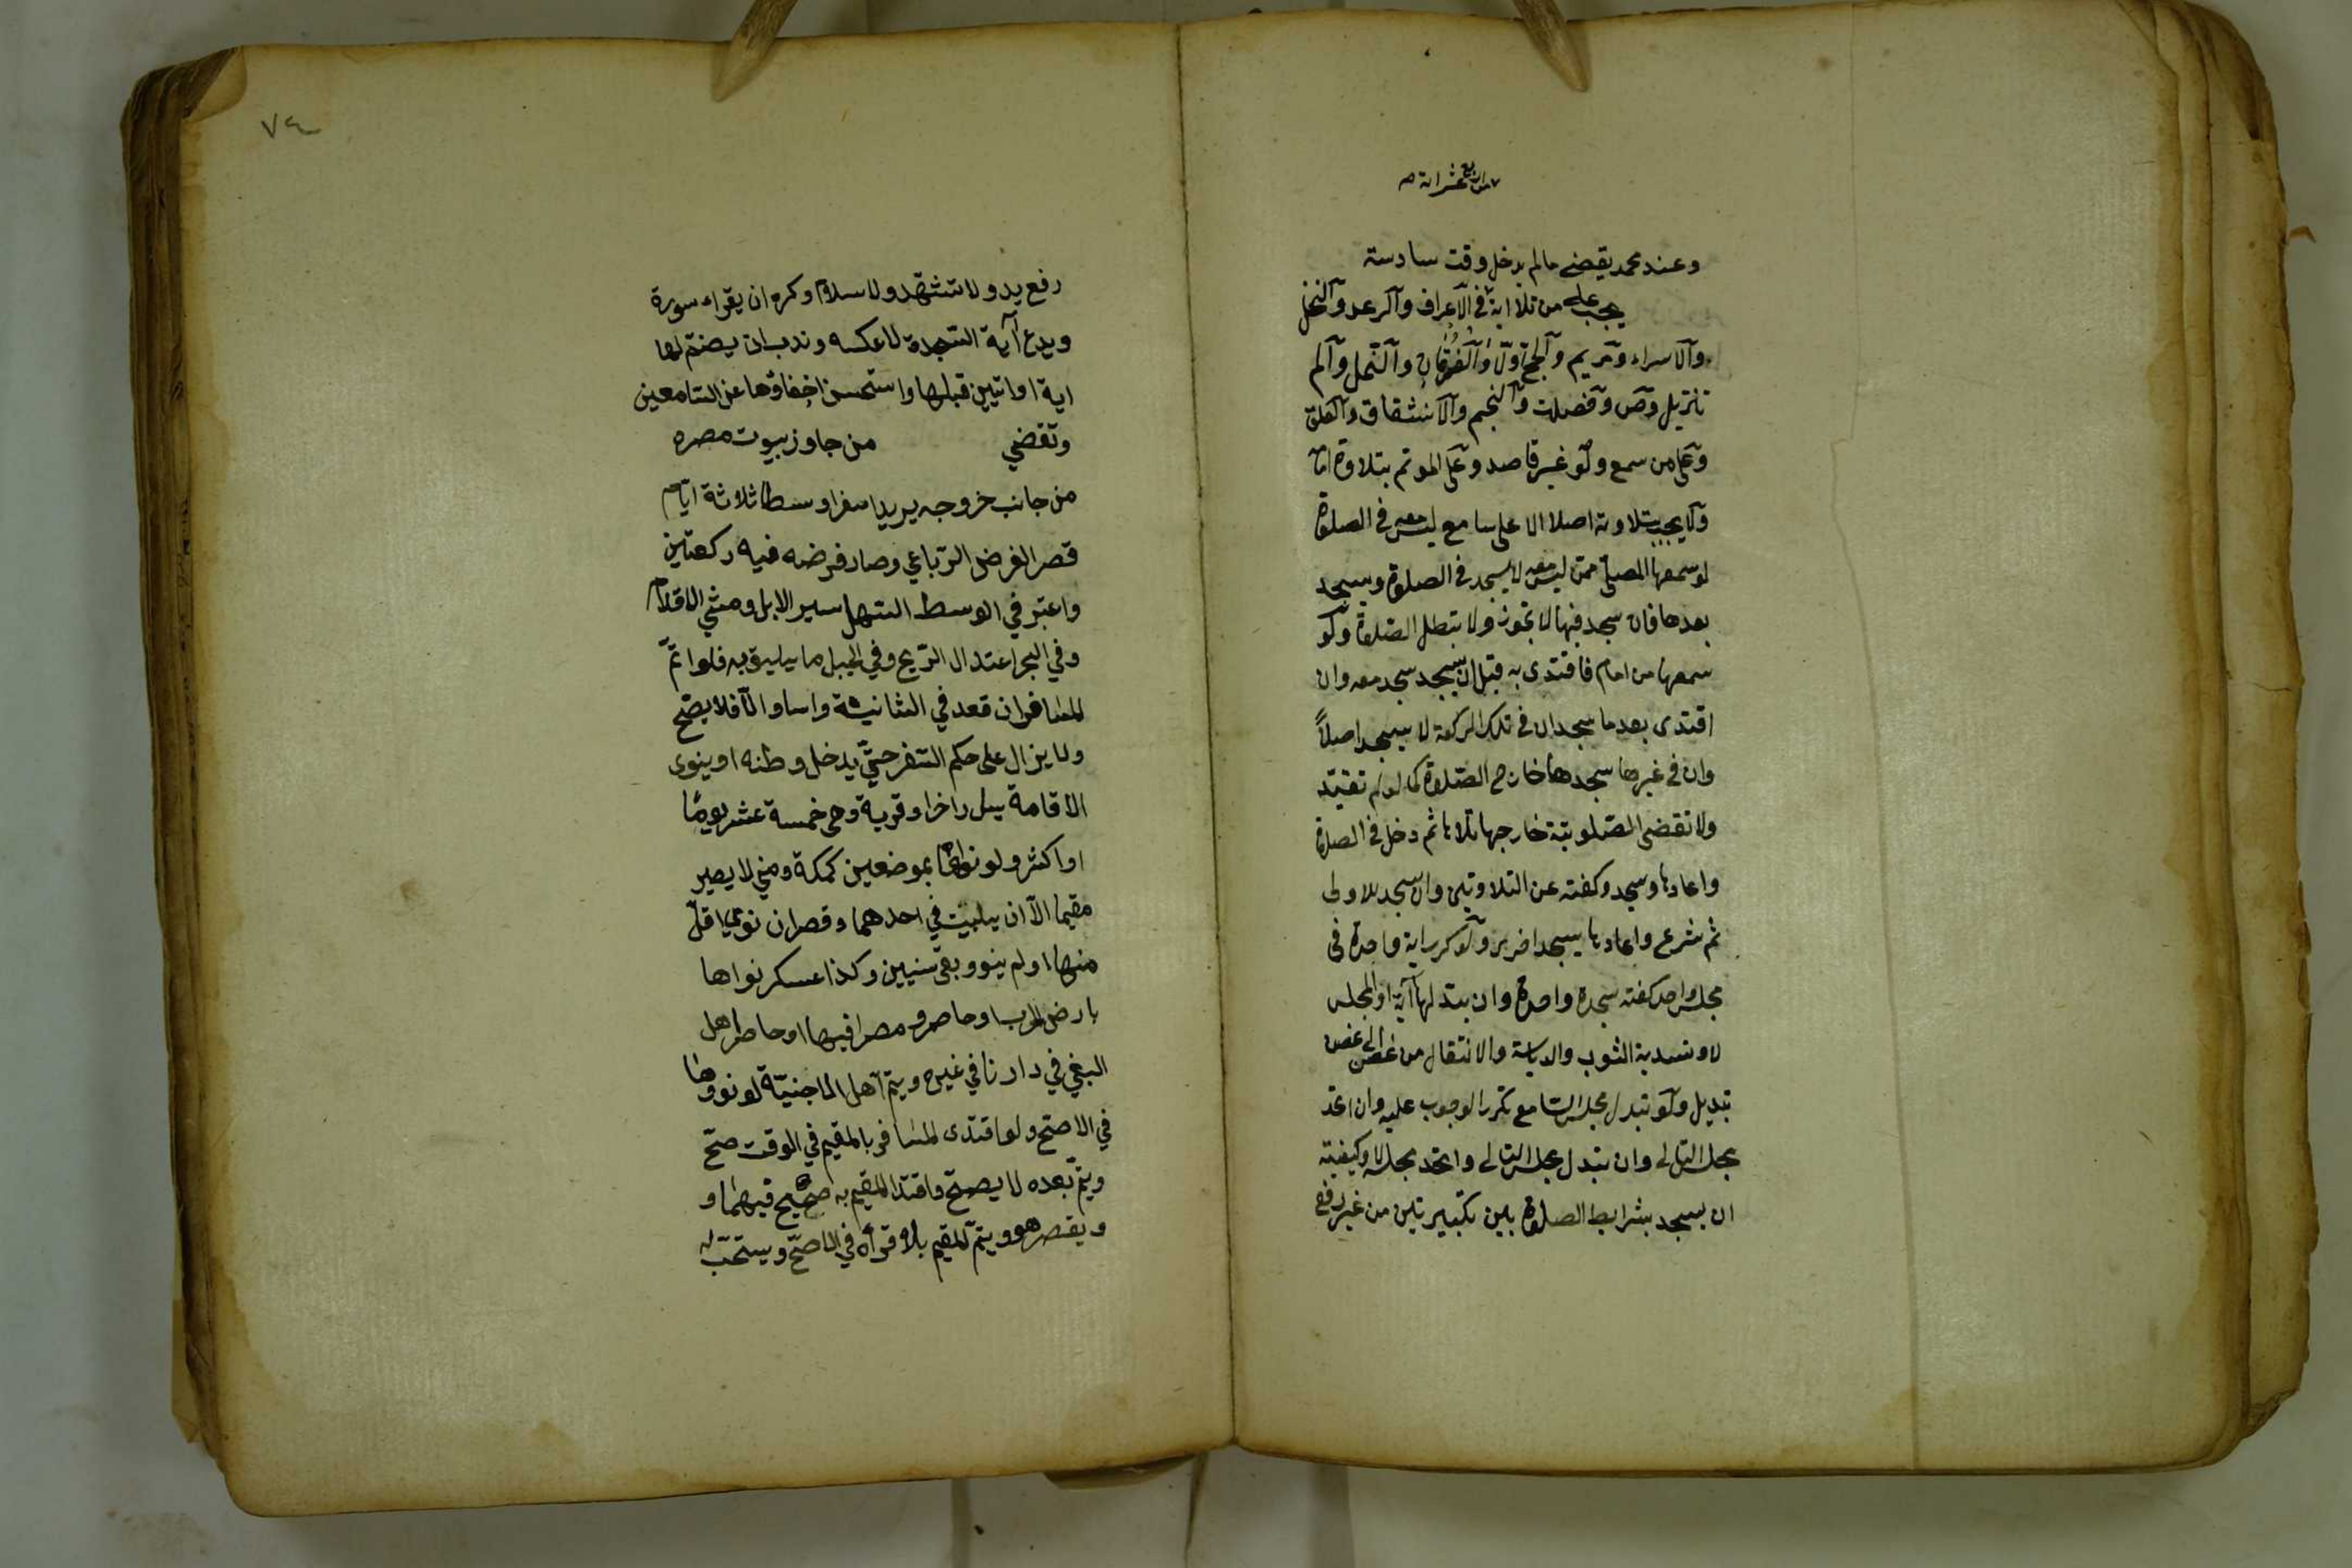 من اربع عشراية
وعند محمد يقضي مالم يدخل وقت سادسة
يجب على من تلا اية في الاعراف والرعد والنحل
والاسراء ومريم والحج اولا والفرقان والنمل والم
تنزيل وص وفصلت والنجم والانشقاق والعلق
وعلى من سمع ولو غير قاصد وعلى الموتم بتلاوة امامه
ولا يجب بتلاوته اصلا الا على سامع ليس معه في الصلوة
لو سمعها المصلي ممن ليس معه لا يسجد في الصلوة ويسجد
بعدها فان سجد فيها لا تجوز ولا تبطل الصلوة ولو
سمعها من امام فاقتدى به قبل ان يسجد سجد معه وان
اقتدى بعد ما سجد ان في تلك الركعة لا يسجد اصلاً
وان في غيرها سجدها خارج الصلوة كما لو لم تقتد
ولا تقضى الصلوتية خارجها تلاها ثم دخل في الصلوة
واعادها وسجد وكفته عن التلاوتين وان سجد للاولى
ثم شرع واعادها يسجد اخرى ولو كرر اية واحدة في
مجلس واحد كفته سجدة واحدة وان بتدلها آية او المجلس
لا وتسدية الثوب والدياسة والانتقال من غصن الى غصن
تبديل ولو تبدل مجلس السامع تكرر الوجوب عليه وان اتحد
مجلس التالي وان تبدل مجلس التالي واتحد مجلسه لا وكيفيته
ان يسجد بشرايط الصلوة بين تكبيرتين من غير رفع
٧٤
رفع يد ولا تشهد ولا سلام وكره ان يقراء سورة
ويدع آية السجدة لا عكسه وندب ان يضم لها
اية او اتين قبلها واستحسن اخفاؤها عن السامعين
وتقضي من جاوز بيوت مصره
من جانب خروجه يريد سفرا وسطا ثلاثة ايام
قصر الفرض الرباعي وصار فرضه فيه ركعتين
واعتبر في الوسط السهل سير الابل ومشي الاقدام
وفي البحر اعتدال الريح وفي الجبل ما يليق به فلو اتم
المسافر ان قعد في الثانية صح واساء والا فلا يصح
ولا يزال على حكم السفر حتى يدخل وطنه او ينوى
الاقامة ببلد اخر او قرية وهي خمسة عشر يومًا
او اكثر ولو نواها بموضعين كمكة ومنى لا يصير
مقيما الا ان يبيت في احدهما وقصر ان نوى اقل
منها او لم ينو وبقى سنين وكذا عسكر نواها
بارض الحرب او حاصرو مصرا فيها او حاصر اهل
البغي في دارنا في غيره ويتم اهل الاخبية لو نووها
في الاصح ولو اقتدى المسافر بالمقيم في الوقت صح
ويتم بعده لا يصح واقتدا المقيم به صحيح فيهما و
ويقصر هو ويتم المقيم بلا قراة في الاصح ويستحب له